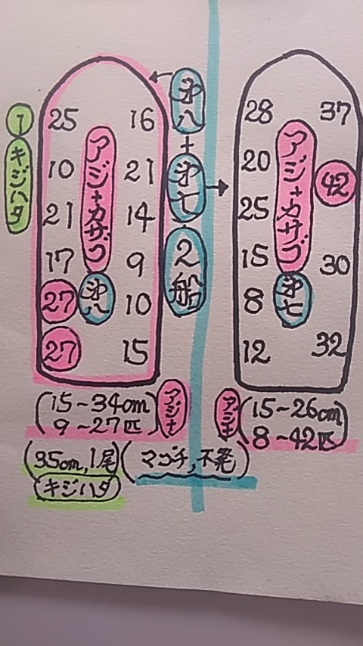 1キジハタ
25 16
10 21
21 14
17 9
27 10
27 15
アジ+カサゴ
第八
(15~34cm
9~27匹)
アジ+
35cm,1尾
キジハタ
第八+第七 2船
28 37
20 42
25
15 30
8
12 32
アジ+カサゴ
第七
アジ+
(15~26cm
8~42匹)
(マゴチ,不発)